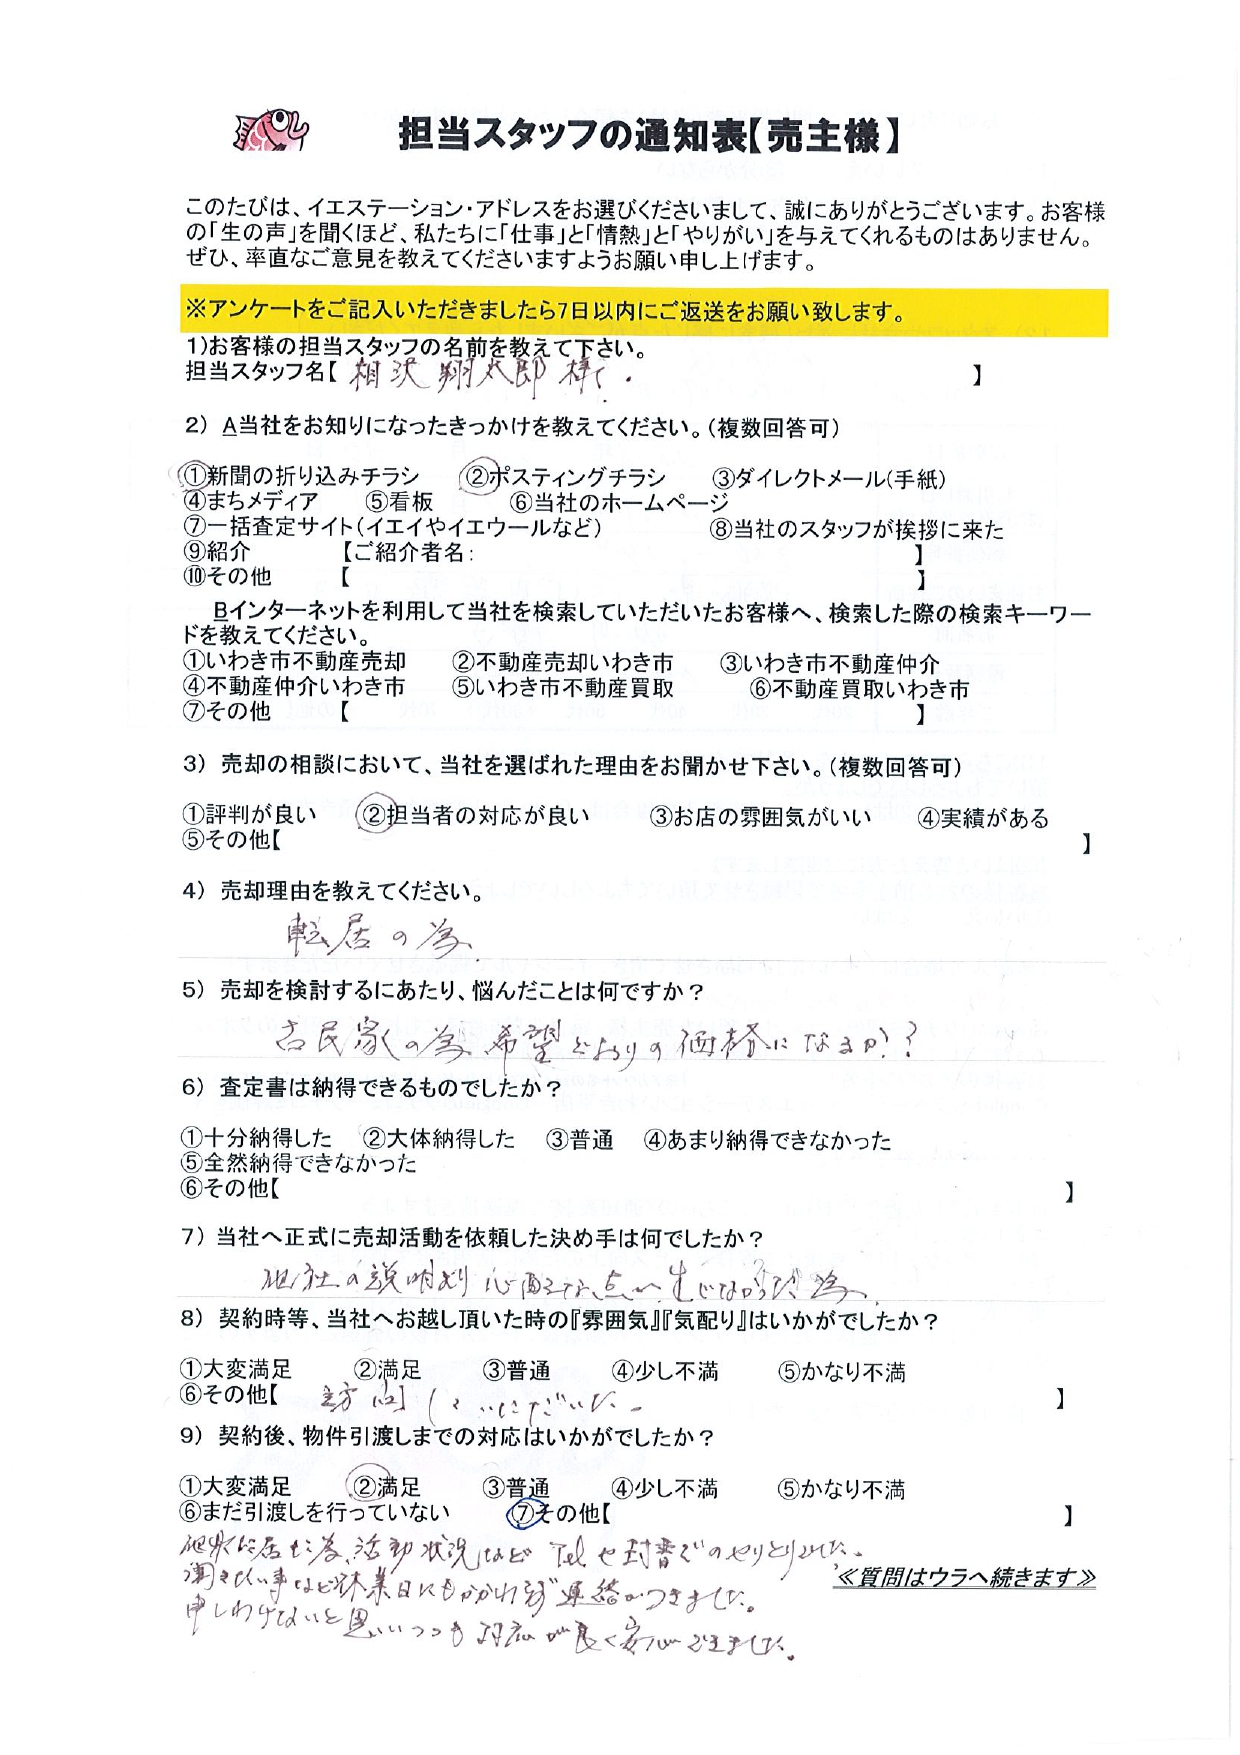 担当スタッフの通知表【売主様】
このたびは、イエステーション・アドレスをお選びくださいまして、誠にありがとうございます。お客様
の「生の声」を聞くほど、私たちに「仕事」と「情熱」と「やりがい」を与えてくれるものはありません。
ぜひ、率直なご意見を教えてくださいますようお願い申し上げます。
※アンケートをご記入いただきましたら7日以内にご返送をお願い致します。
1)お客様の担当スタッフの名前を教えて下さい。
担当スタッフ名【 相沢 翔太郎 様 】
2) A当社をお知りになったきっかけを教えてください。(複数回答可)
①新聞の折り込みチラシ ②ポスティングチラシ ③ダイレクトメール(手紙)
④まちメディア ⑤看板 ⑥当社のホームページ
⑦一括査定サイト(イエイやイエウールなど) ⑧当社のスタッフが挨拶に来た
⑨紹介 【ご紹介者名: 】
⑩その他 【 】
Bインターネットを利用して当社を検索していただいたお客様へ、検索した際の検索キーワー
ドを教えてください。
①いわき市不動産売却 ②不動産売却いわき市 ③いわき市不動産仲介
④不動産仲介いわき市 ⑤いわき市不動産買取 ⑥不動産買取いわき市
⑦その他 【 】
3) 売却の相談において、当社を選ばれた理由をお聞かせ下さい。(複数回答可)
①評判が良い ②担当者の対応が良い ③お店の雰囲気がいい ④実績がある
⑤その他【 】
4) 売却理由を教えてください。
転居の為
5) 売却を検討するにあたり、悩んだことは何ですか?
古民家の為 希望どおりの価格になるか?
6) 査定書は納得できるものでしたか?
①十分納得した ②大体納得した ③普通 ④あまり納得できなかった
⑤全然納得できなかった
⑥その他【 】
7) 当社へ正式に売却活動を依頼した決め手は何でしたか?
他社の説明より心配な点が生じなかった為
8) 契約時等、当社へお越し頂いた時の『雰囲気』『気配り』はいかがでしたか?
①大変満足 ②満足 ③普通 ④少し不満 ⑤かなり不満
⑥その他【 訪問していただいた 】
9) 契約後、物件引渡しまでの対応はいかがでしたか?
①大変満足 ②満足 ③普通 ④少し不満 ⑤かなり不満
⑥まだ引渡しを行っていない ⑦その他【 】
他県に居た為、活動状況など Telや封書でのやりとりでした。
聞きたい事など休業日にもかかわらず連絡がつきました。
≪質問はウラへ続きます≫
申しわけないと思いつつも対応が良く安心できました。